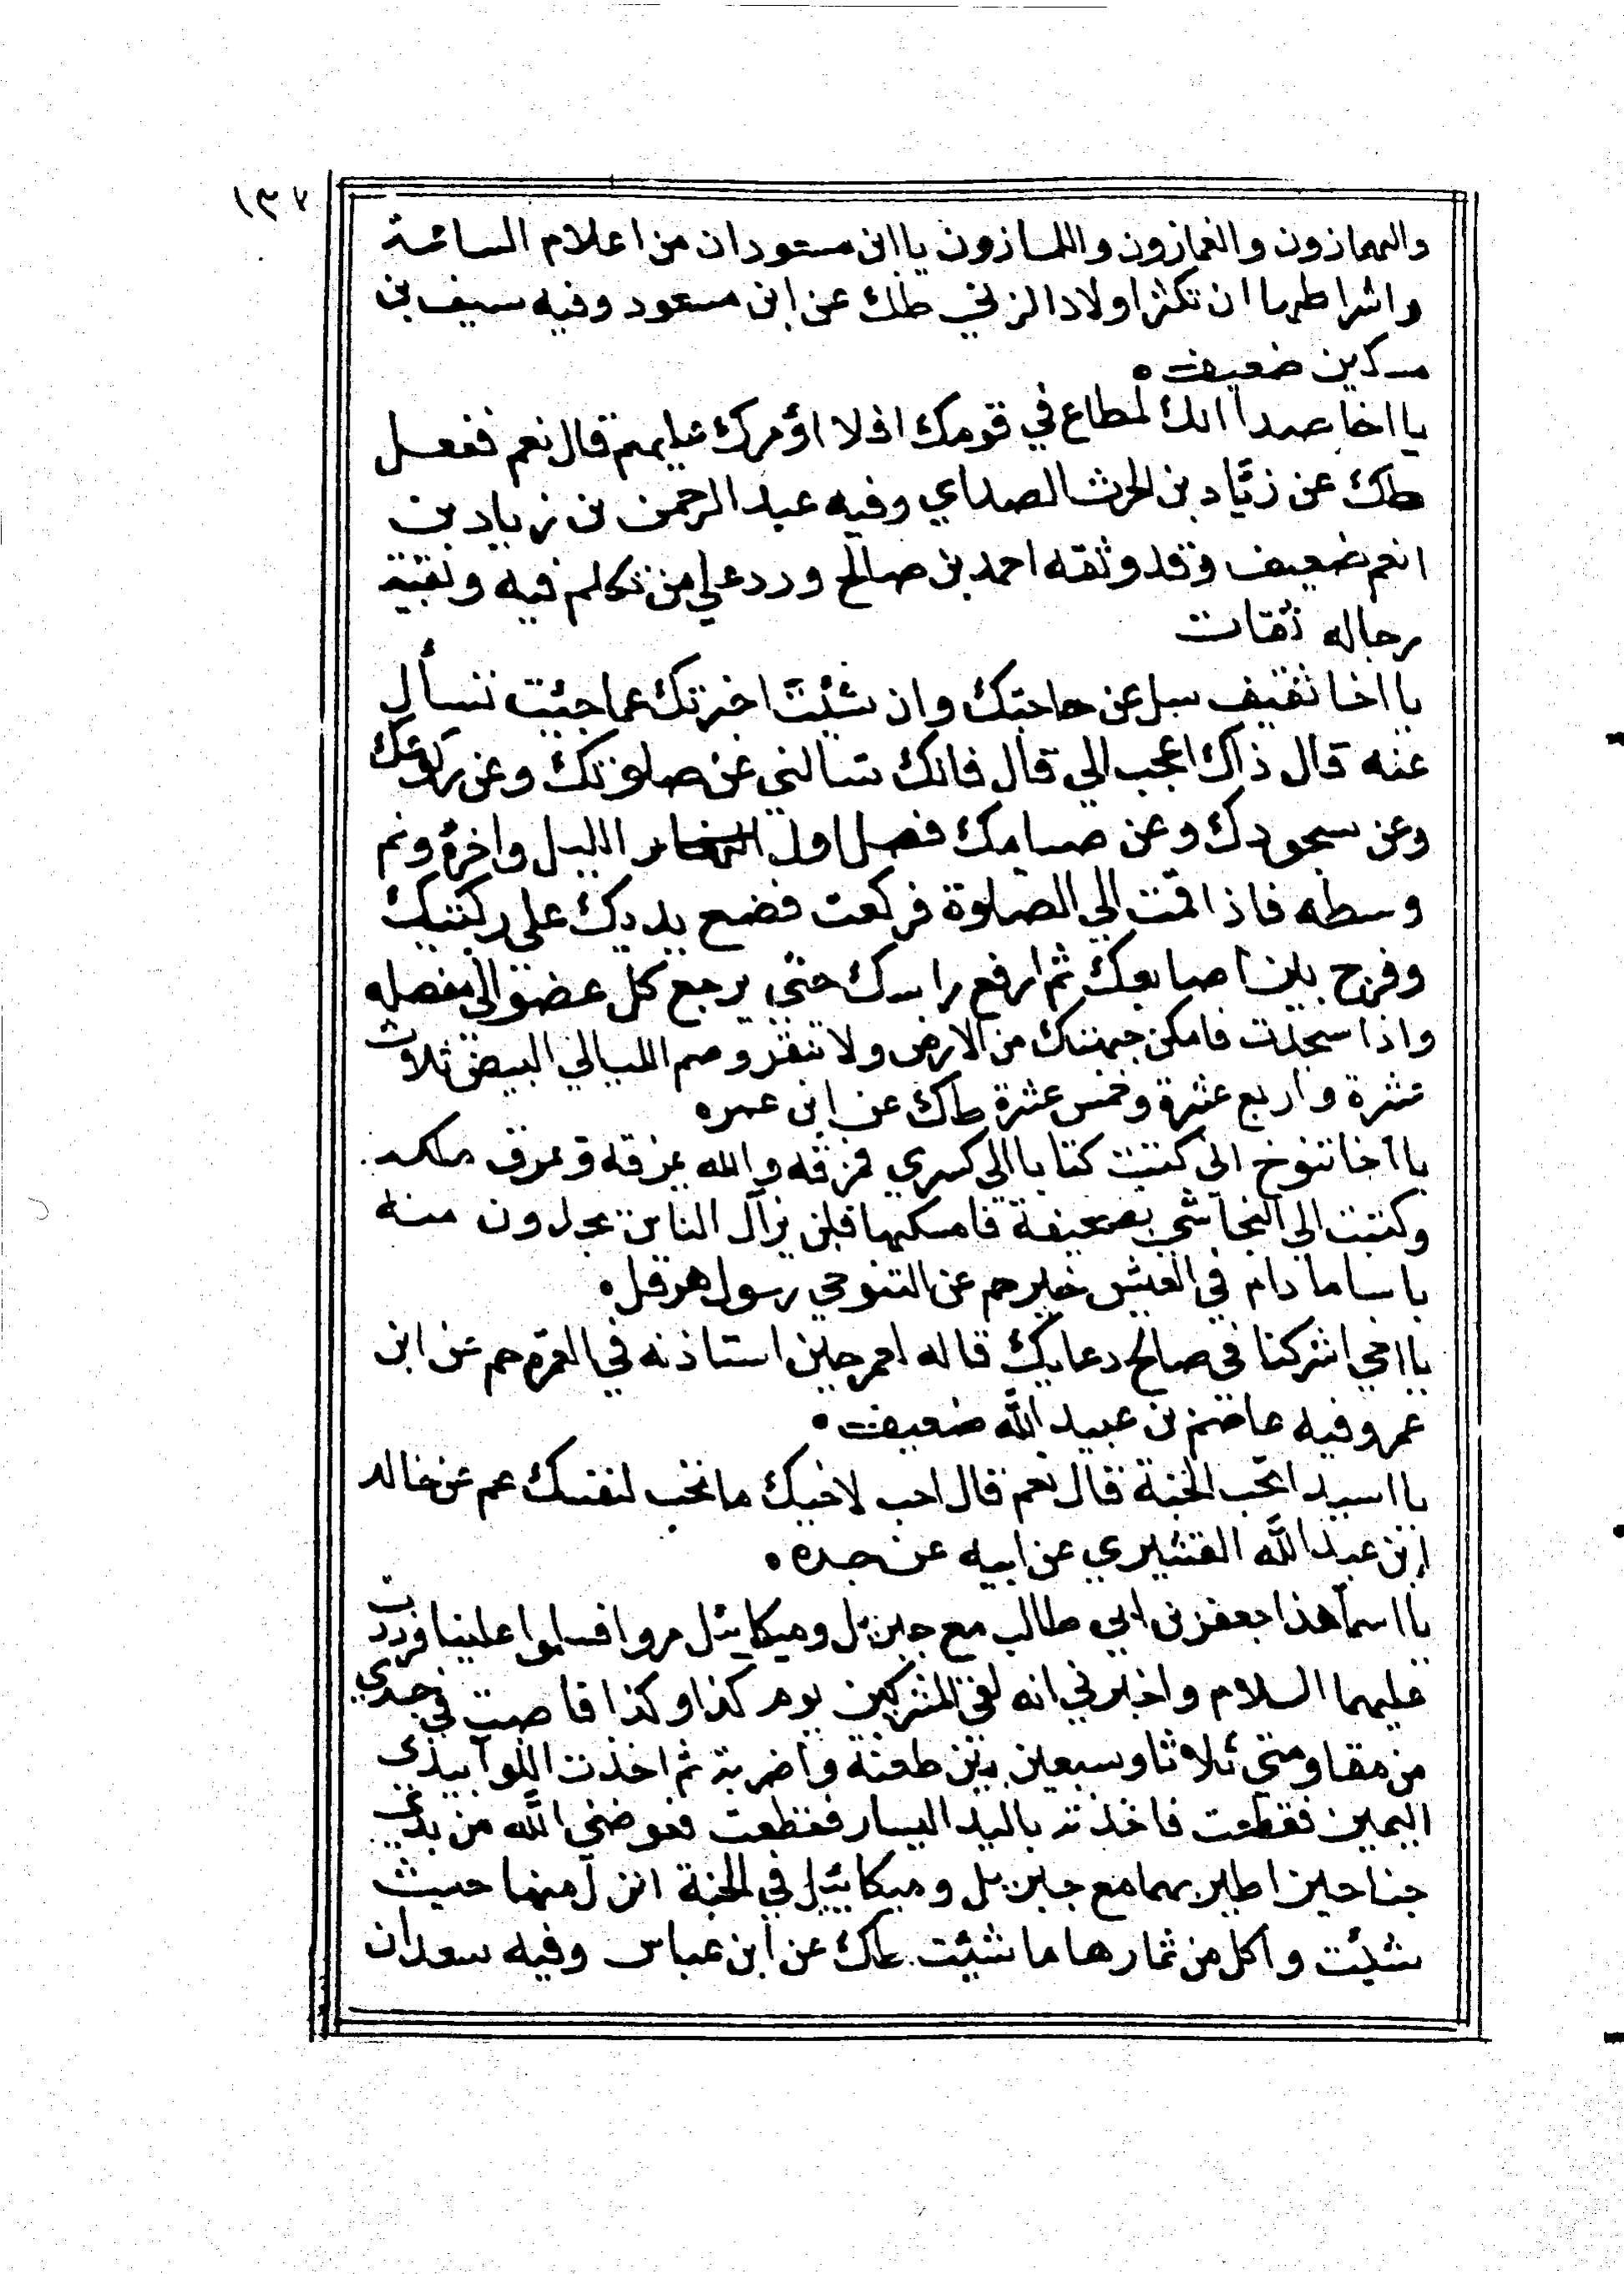 ١٣٧
والهمازون والغمازون واللمازون يا ابن مسعود ان من اعلام الساعة
واشراطها ان تكثر اولاد الزني طك عن ابن مسعود وفيه سيف بن
مسكين ضعيف ه
يا اخا صدا انك لمطاع في قومك افلا اؤمرك عليهم قال نعم ففعل
طك عن زياد بن الحرث الصداي وفيه عبد الرحمن بن زياد بن
انعم ضعيف وقد وثقه احمد بن صالح ورد علي من تكلم فيه وبقية
رجاله ثقات
يا اخا ثقيف سل عن حاجتك وان شئت اخبرتك عما جئت تسأل
عنه قال ذاك اعجب الي قال فانك تسالني عن صلوتك وعن ركوعك
وعن سجودك وعن صيامك فصل اول النهار الليل واخره ونم
وسطه فاذا قمت الي الصلوة فركعت فضع يديك علي ركبتيك
وفرج بين اصابعك ثم ارفع راسك حتي يرجع كل عضو الي مفصله
واذا سجدت فامكن جبهتك من الارض ولا تنقر وصم الليالي البيض ثلاث
عشرة واربع عشرة وخمس عشرة طك عن ابن عمر ه
يا اخا تنوخ اني كتبت كتابا الي كسري فمزقه والله يمزقه ويمزق ملكه
وكتبت الي النجاشي بصحيفة فامسكها فلن يزال الناس يجدون منه
باسا ما دام في العيش خير حم عن التنوخي رسول هرقل ه
يا اخي اشركنا في صالح دعايك قاله لعمر حين استاذنه في العمرة حم عن ابن
عمر وفيه عاصم بن عبيد الله ضعيف ه
يا اسيد اتحب الجنة قال نعم قال احب لاخيك ما تحب لنفسك عم عن خالد
ابن عبد الله القشيري عن ابيه عن جده ه
يا اسما هذا جعفر بن ابي طالب مع جبريل وميكائيل مروا فسلموا علينا فرددت
عليهما السلام واخبرني انه لقي المشركين يوم كذا وكذا فاصبت في جسدي
من مقاومتي ثلاثا وسبعين بين طعنة واضربة ثم اخذت اللوا بيدي
اليمين فقطعت فاخذته باليد اليسار فقطعت فعوضني الله من يدي
جناحين اطير بهما مع جبريل وميكائيل في الجنة انزل منها حيث
شئت واكل من ثمارها ما شئت طك عن ابن عباس وفيه سعدان